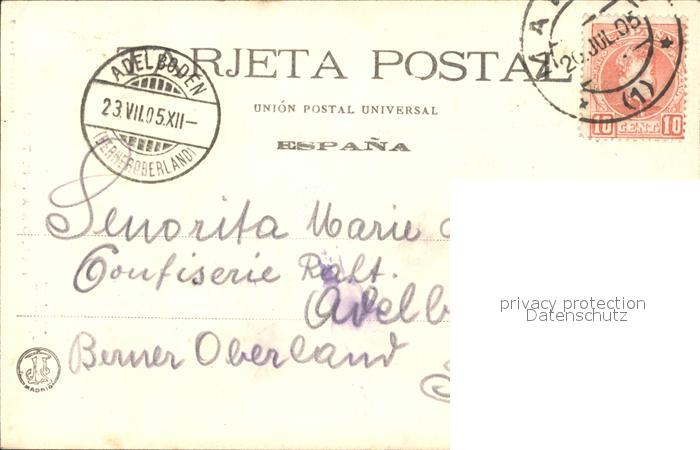 TARJETA POSTAL
UNIÓN POSTAL UNIVERSAL
ESPAÑA
ADELBODEN
23.VII.05.XII–
(BERNEROBERLAND)
20 JUL 05
(1)
10 CENT. 10
Señorita Marie
Confiserie
Adelb
Berner Oberland
MADRID
privacy protection
Datenschutz